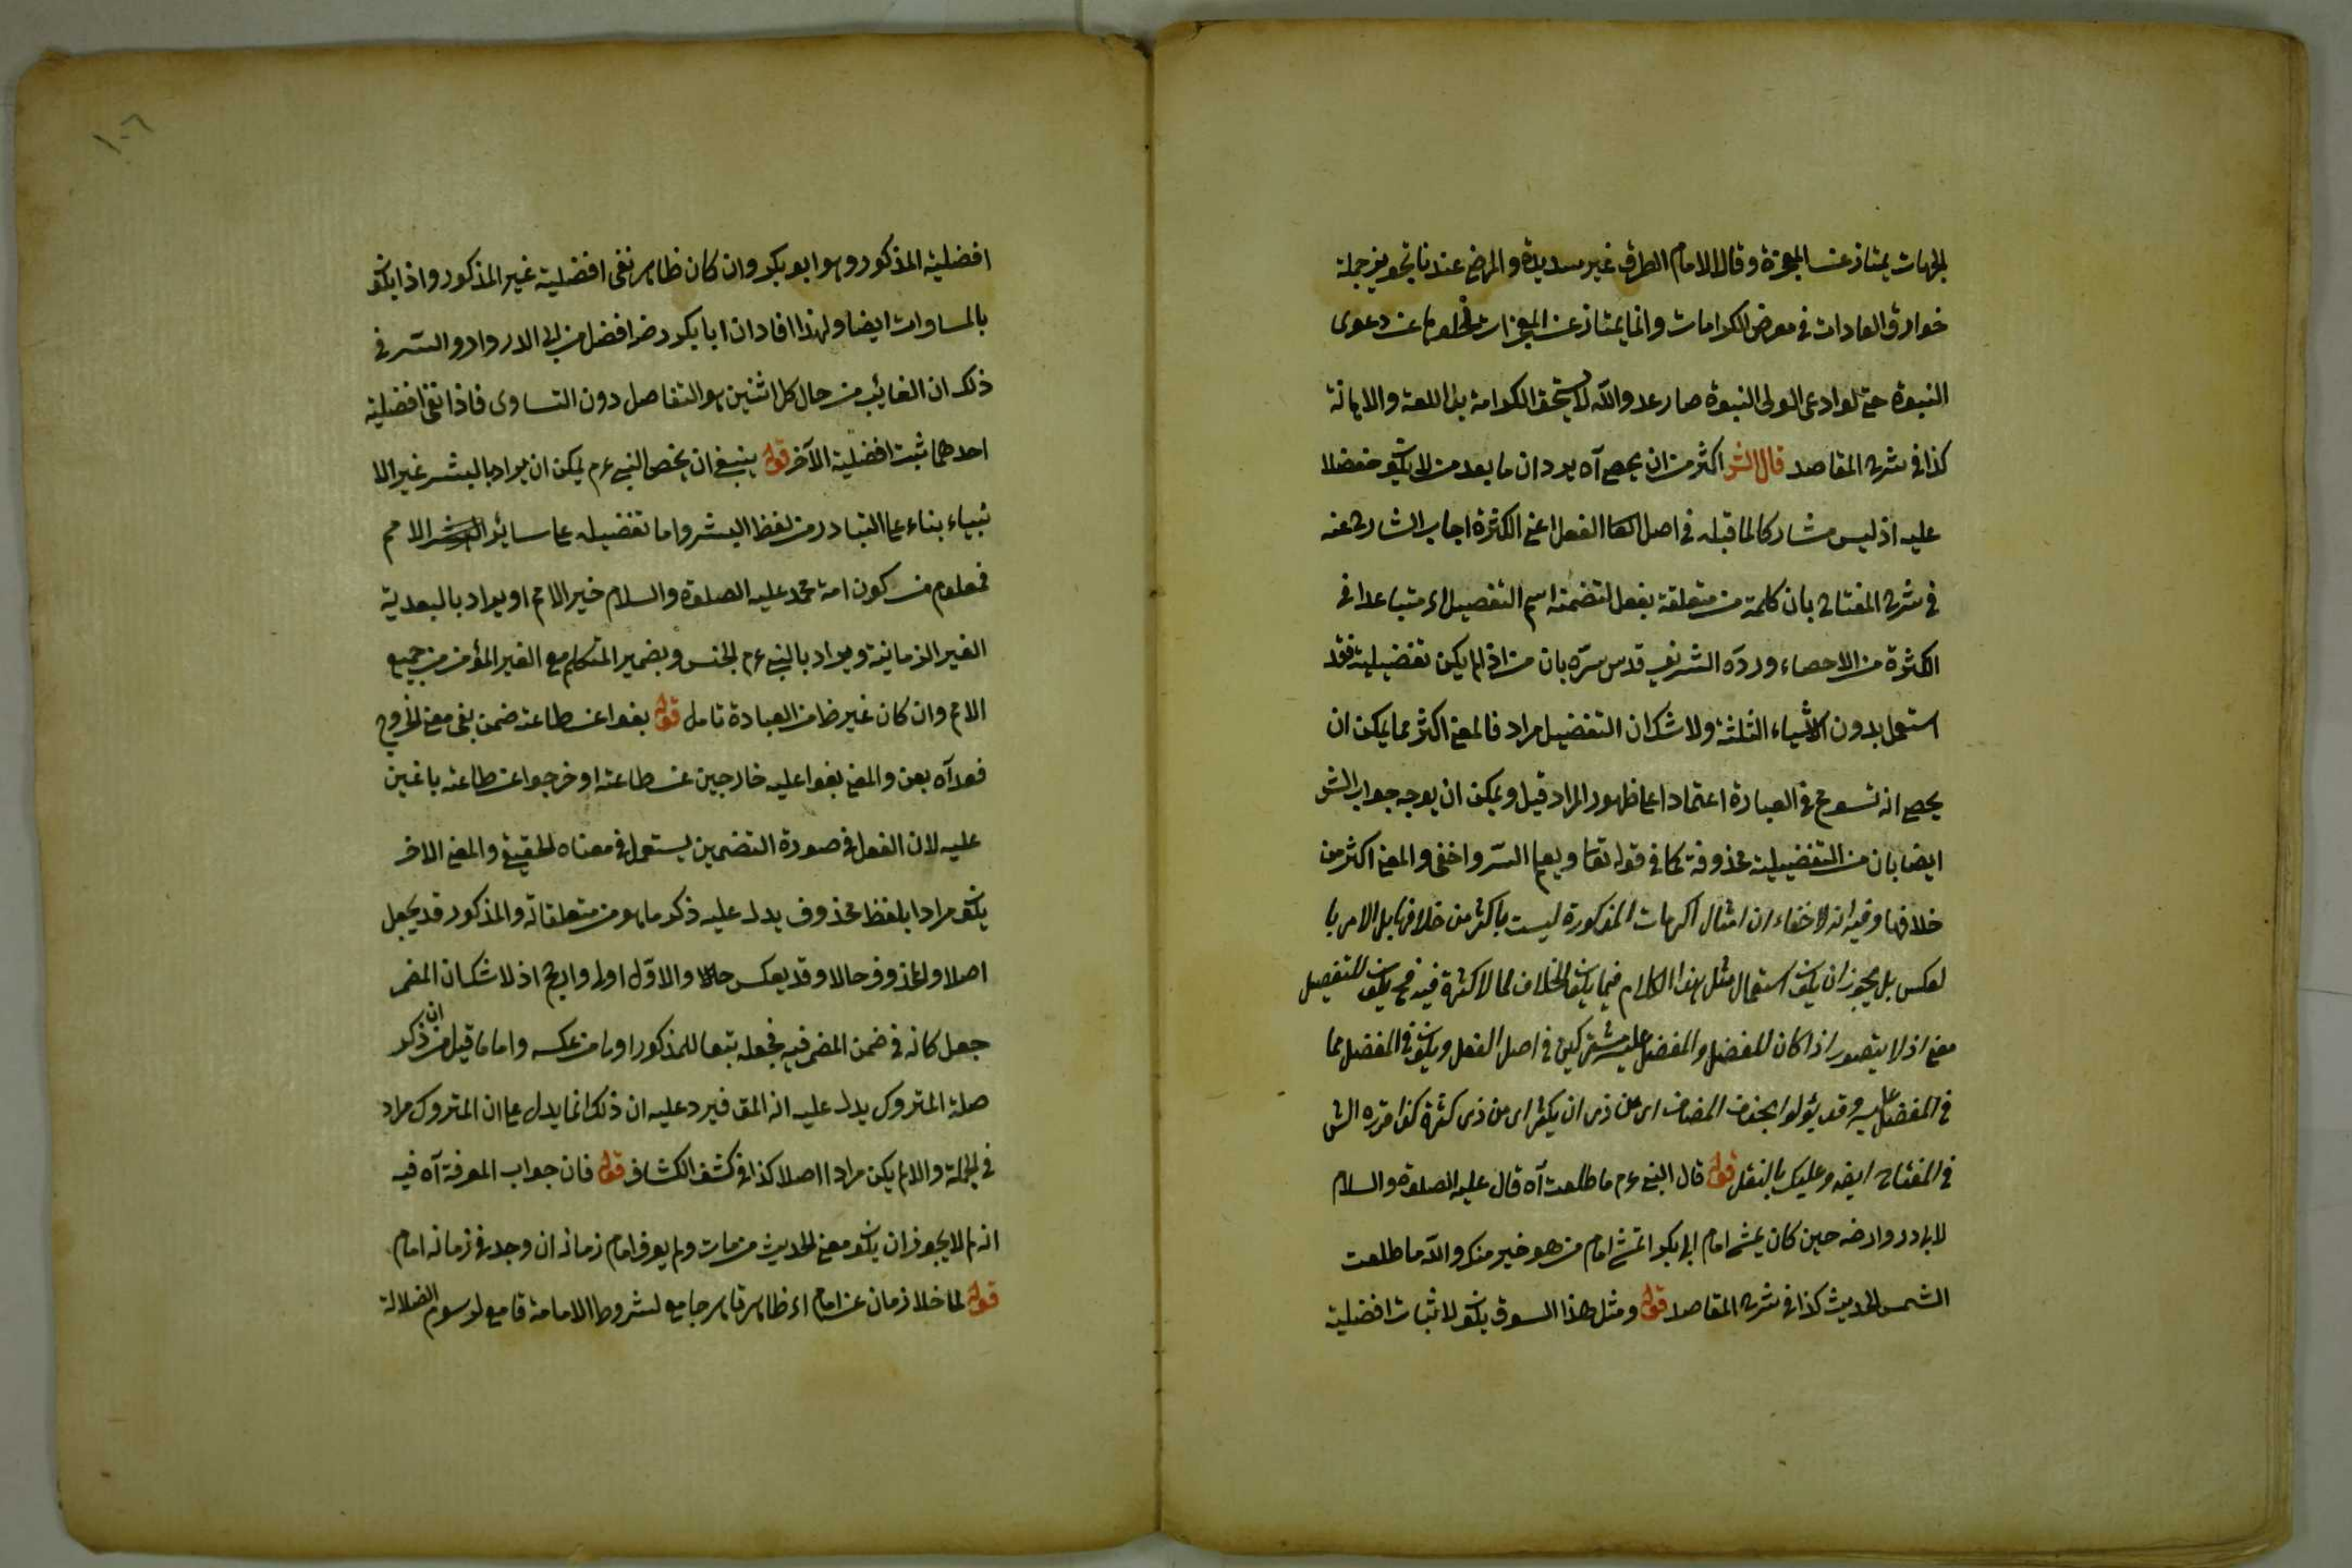 الجهات يمتاز عن المعجزة وقال الامام الطرق غير سديدة والمرضى عندنا تجويز جملة
خوارق العادات فى معرض الكرامات وانما يمتاز عن المعجزات بخلوها عن دعوى
النبوة حتى لو ادعى الولى النبوة صار عدو الله لا يستحق الكرامة بل اللعنة والاهانة
كذا فى شرح المقاصد قال الش اكثر من ان يحصى آه يرد ان ما بعد من لا يكون مفضلا
عليه اذ ليس مشاركا لما قبله فى اصل الفعل اعنى الكثرة اجاب الشارح عنه
فى شرح المفتاح بان كلمة من متعلقة بفعل تضمنه اسم التفضيل اى متباعدا فى
الكثرة من الاحصاء ورده الشريف قدس سره بان من اذ لم يكن تفضيلية فقد
استعمل بدون الاشياء الثلثة ولا شك ان التفضيل مراد فالمعنى اكثر مما يمكن ان
يحصى انه تسومح فى العبارة اعتمادا على ظهور المراد قيل ويمكن ان يوجه جواب الش
ايضا بان من التفضيلية محذوفة كما فى قوله تعا ويعلم السر واخفى والمعنى اكثر من
خلافها وفيه انه لا خفاء ان امثال الجهات المذكورة ليست باكثر من خلافها بل الامر با
لعكس بل يجوز ان يكون استعمال مثل هذا الكلام فيما يكون الخلاف مما لا كثرة فيه فح يكون للتفضيل
معنى اذ لا يتصور اذا كان المفضل والمفضل عليه مشتركين فى اصل الفعل ويكون فى المفضل مما
فى المفضل عليه وقد يئولو بحذف المضاف اى من ذى ان يكثر اى من ذى كثرة كذا قرره الش
فى المفتاح ايضه وعليك بالنقل قوله قال النبى ءم ما طلعت آه قال عليه الصلوة والسلام
لابى دردا رضه حين كان يمشى امام ابى بكر اتمشى امام من هو خير منك والله ما طلعت
الشمس الحديث كذا فى شرح المقاصد قوله ومثل هذا السوق يكون لاثبات افضلية
١٠٦
افضلية المذكور وهو ابو بكر وان كان ظاهره نفى افضلية غير المذكور واذا يكون
بالمساوات ايضا ولهذا افاد ان ابا بكر رضه افضل من ابى الدرداء والسر فى
ذلك ان الغالب من حال كل اثنين هو التفاضل دون التساوى فاذا نفى افضلية
احدهما ثبت افضلية الآخر قوله ينبغى ان يخص النبى ءم يمكن ان يراد بالبشر غير الا
نبياء بناء على التبادر من لفظ البشر واما تفضيله على سائر الامم
فمعلوم من كون امة محمد عليه الصلوة والسلام خير الامم او يراد بالبعدية
الغير الزمانية ويراد بالنبى ءم الجنس وبضمير المتكلم مع الغير المؤمن من جميع
الامم وان كان غير ظ من العبارة تامل قوله بغوا عن طاعته ضمن بغى معنى الخروج
فعداه بعن والمعنى بغوا عليه خارجين عن طاعته او خرجوا عن طاعته باغين
عليه لان الفعل فى صورة التضمين يستعمل فى معناه الحقيقى والمعنى الاخر
يكون مرادا بلفظ محذوف يدل عليه ذكر ما هو من متعلقاته والمذكور قد يجعل
اصلا والمحذوف حالا وقد يعكس والاول اولى وارجح اذ لا شك ان المضمر
جعل كانه فى ضمن المضمر فيه فجعله تبعا للمذكور اولى من عكسه واما ما قيل من ان ذكر
صلة المتروك يدل عليه انه المق فيرد عليه ان ذلك انما يدل على ان المتروك مراد
فى الجملة والا لم يكن مرادا اصلا كذا فى كشف الكشاف قوله فان جواب المعرفة آه فيه
انه لم لا يجوز ان يكون معنى الحديث من مات ولم يعرف امام زمانه ان وجد فى زمانه امام
قوله لما خلا زمان عن امام اى ظاهر قاهر جامع لشروط الامامة قامع لرسوم الضلالة